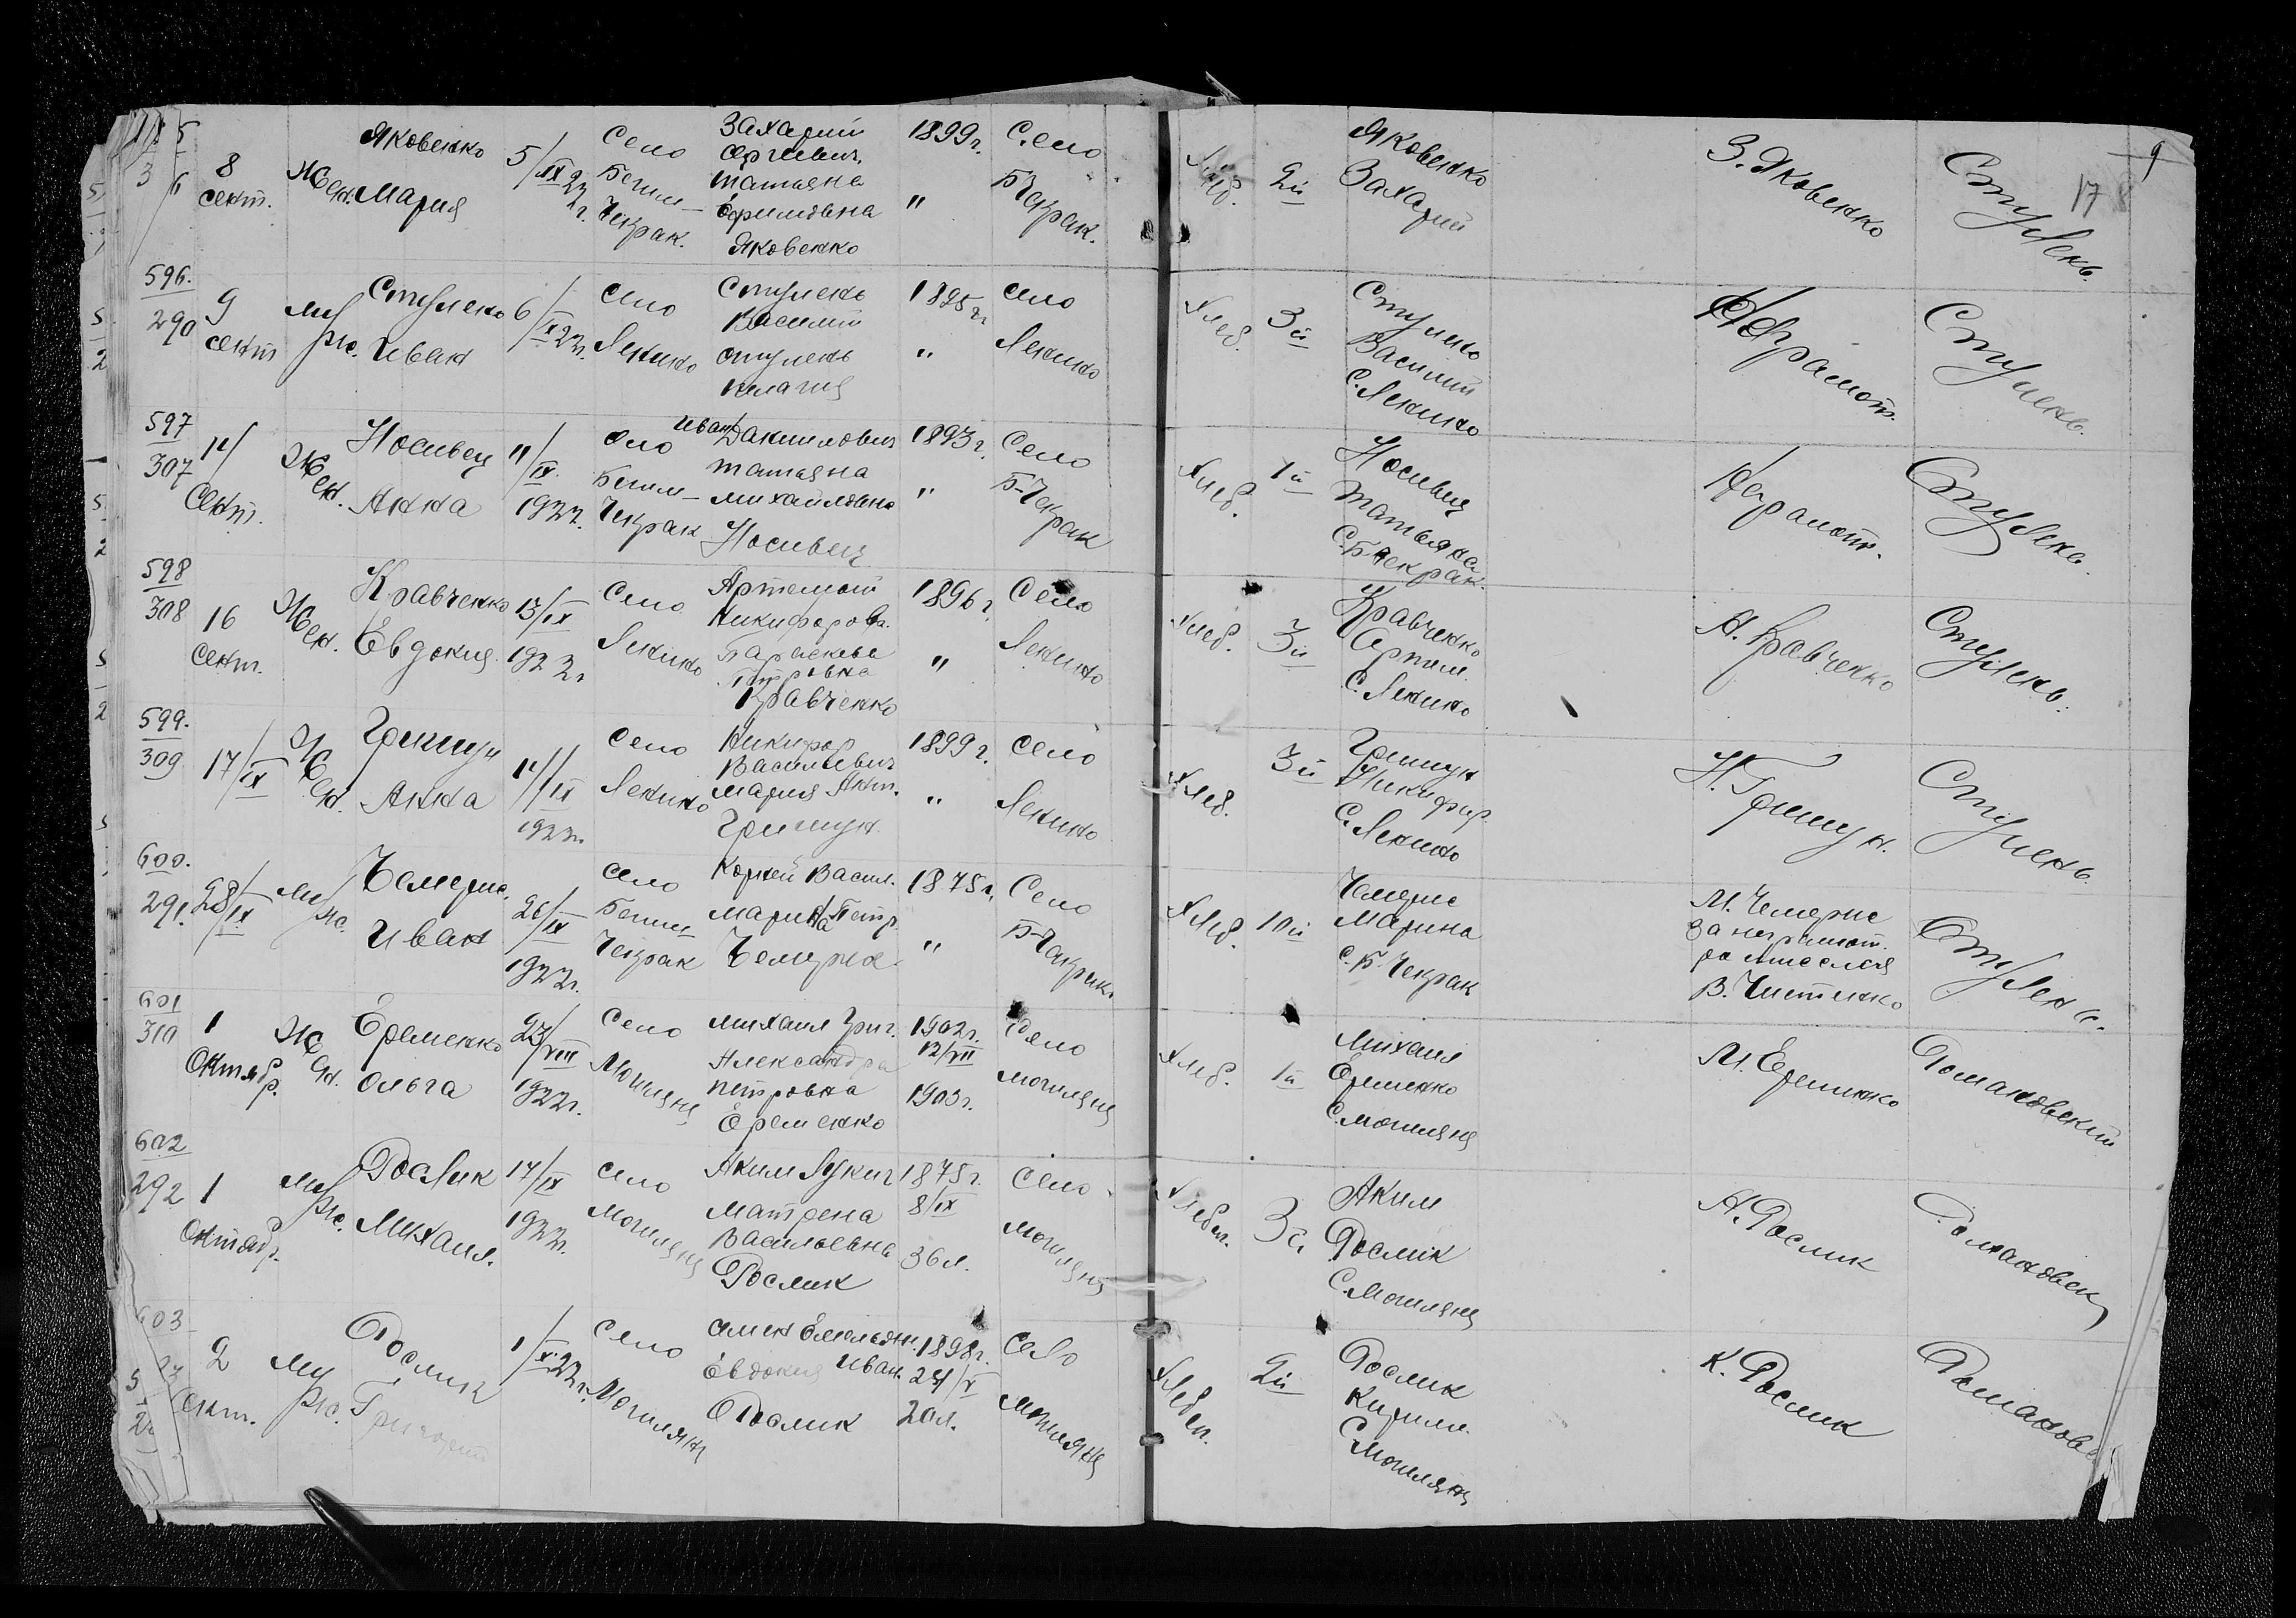 8
сент.
Жен.
Яковенко
Мария
5/IX 22 г.
Село
Бегим-
Чекрак.
Захарий
Сергиевич.
Татьяна
Ефимовна
Яковенко
1899 г.
"
Село
Б-Чекрак.
Хлеб.
2й
Яковенко
Захарий
З. Яковенко
Стулень.
9
596.
290
9
сент
Муж.
Стулень
Иван
6/IX 22 г.
Село
Ленино
Стулень
Василий
Стулень
Пелагия
1895 г.
"
Село
Ленино
Хлеб.
3й
Стулень
Василий
С. Ленино
Неграмот.
Стулень.
597
307
14/
Сент.
Жен.
Носивец
Анна
11/IX
1922.
Село
Бегим-
Чекрак
Иван Данилович
Татьяна
Михайловна
Носивец
1893 г.
"
Село
Б-Чекрак
Хлеб.
1й
Носивец
Татьяна
С. Б-Чекрак.
Неграмотн.
Стулень.
598
308
16
Сент.
Жен.
Кравченко
Евдокия
13/IX
1922 г
Село
Ленино
Артемий
Никифоров.
Параскева
Петровна
Кравченко
1896 г
"
Село
Ленино
Хлеб.
3й
Кравченко
Артем.
С. Ленино
А. Кравченко
Стулень.
599.
309
17/IX
Жен.
Грицун
Анна
14/IX
1922 г.
Село
Ленино
Никифор
Васильевич
Мария Ант.
Грицун.
1899 г.
"
Село
Ленино
Хлеб.
3й
Грицун
Никифор.
С. Ленино
Н. Грицун.
Стулень.
600.
291.
28/IX
Муж.
Чемерис.
Иван
26/IX
1922 г.
Село
Бегим
Чекрак
Корней Васил.
Марина Петр.
Чемерис.
1875 г.
"
Село
Б-Чекрак.
Хлеб.
1й
Чемерис
Марина
С. Б. Чекрак
М. Чемерис
За неграмот.
росписался
В. Чистенко
Стулень.
601
310
1
Октябр.
Жен.
Еременко
Ольга
27/VIII
1922 г.
Село
Могиляны
Михаил Григ.
Александра
Петровна
Еременко
1902 г.
12/VII
1903 г.
Село
Могиляны
Хлеб.
1й
Михаил
Еременко
С. Могиляны
М. Еременко
Романовский
602
292
1
Октябр.
Муж.
Рослик
Михаил.
17/IX
1922 г.
Село
Могиляны
Аким Лукич
Матрена
Васильевна
Рослик
1875 г.
8/IX
36 л.
Село
Могиляны
Хлебоп.
3й
Аким
Рослик
С. Могиляны
А. Рослик
Романовск
603
2
Окт.
Муж.
Рослик
Григорий
1/X 22 г.
Село
Могиляны
Емельян.
Евдокия Иван.
Рослик
1898 г.
24/V
20 л.
Село
Могиляны
Хлебоп.
2й
Рослик
Кирилл.
С. Могиляны
К. Рослик
Романовс